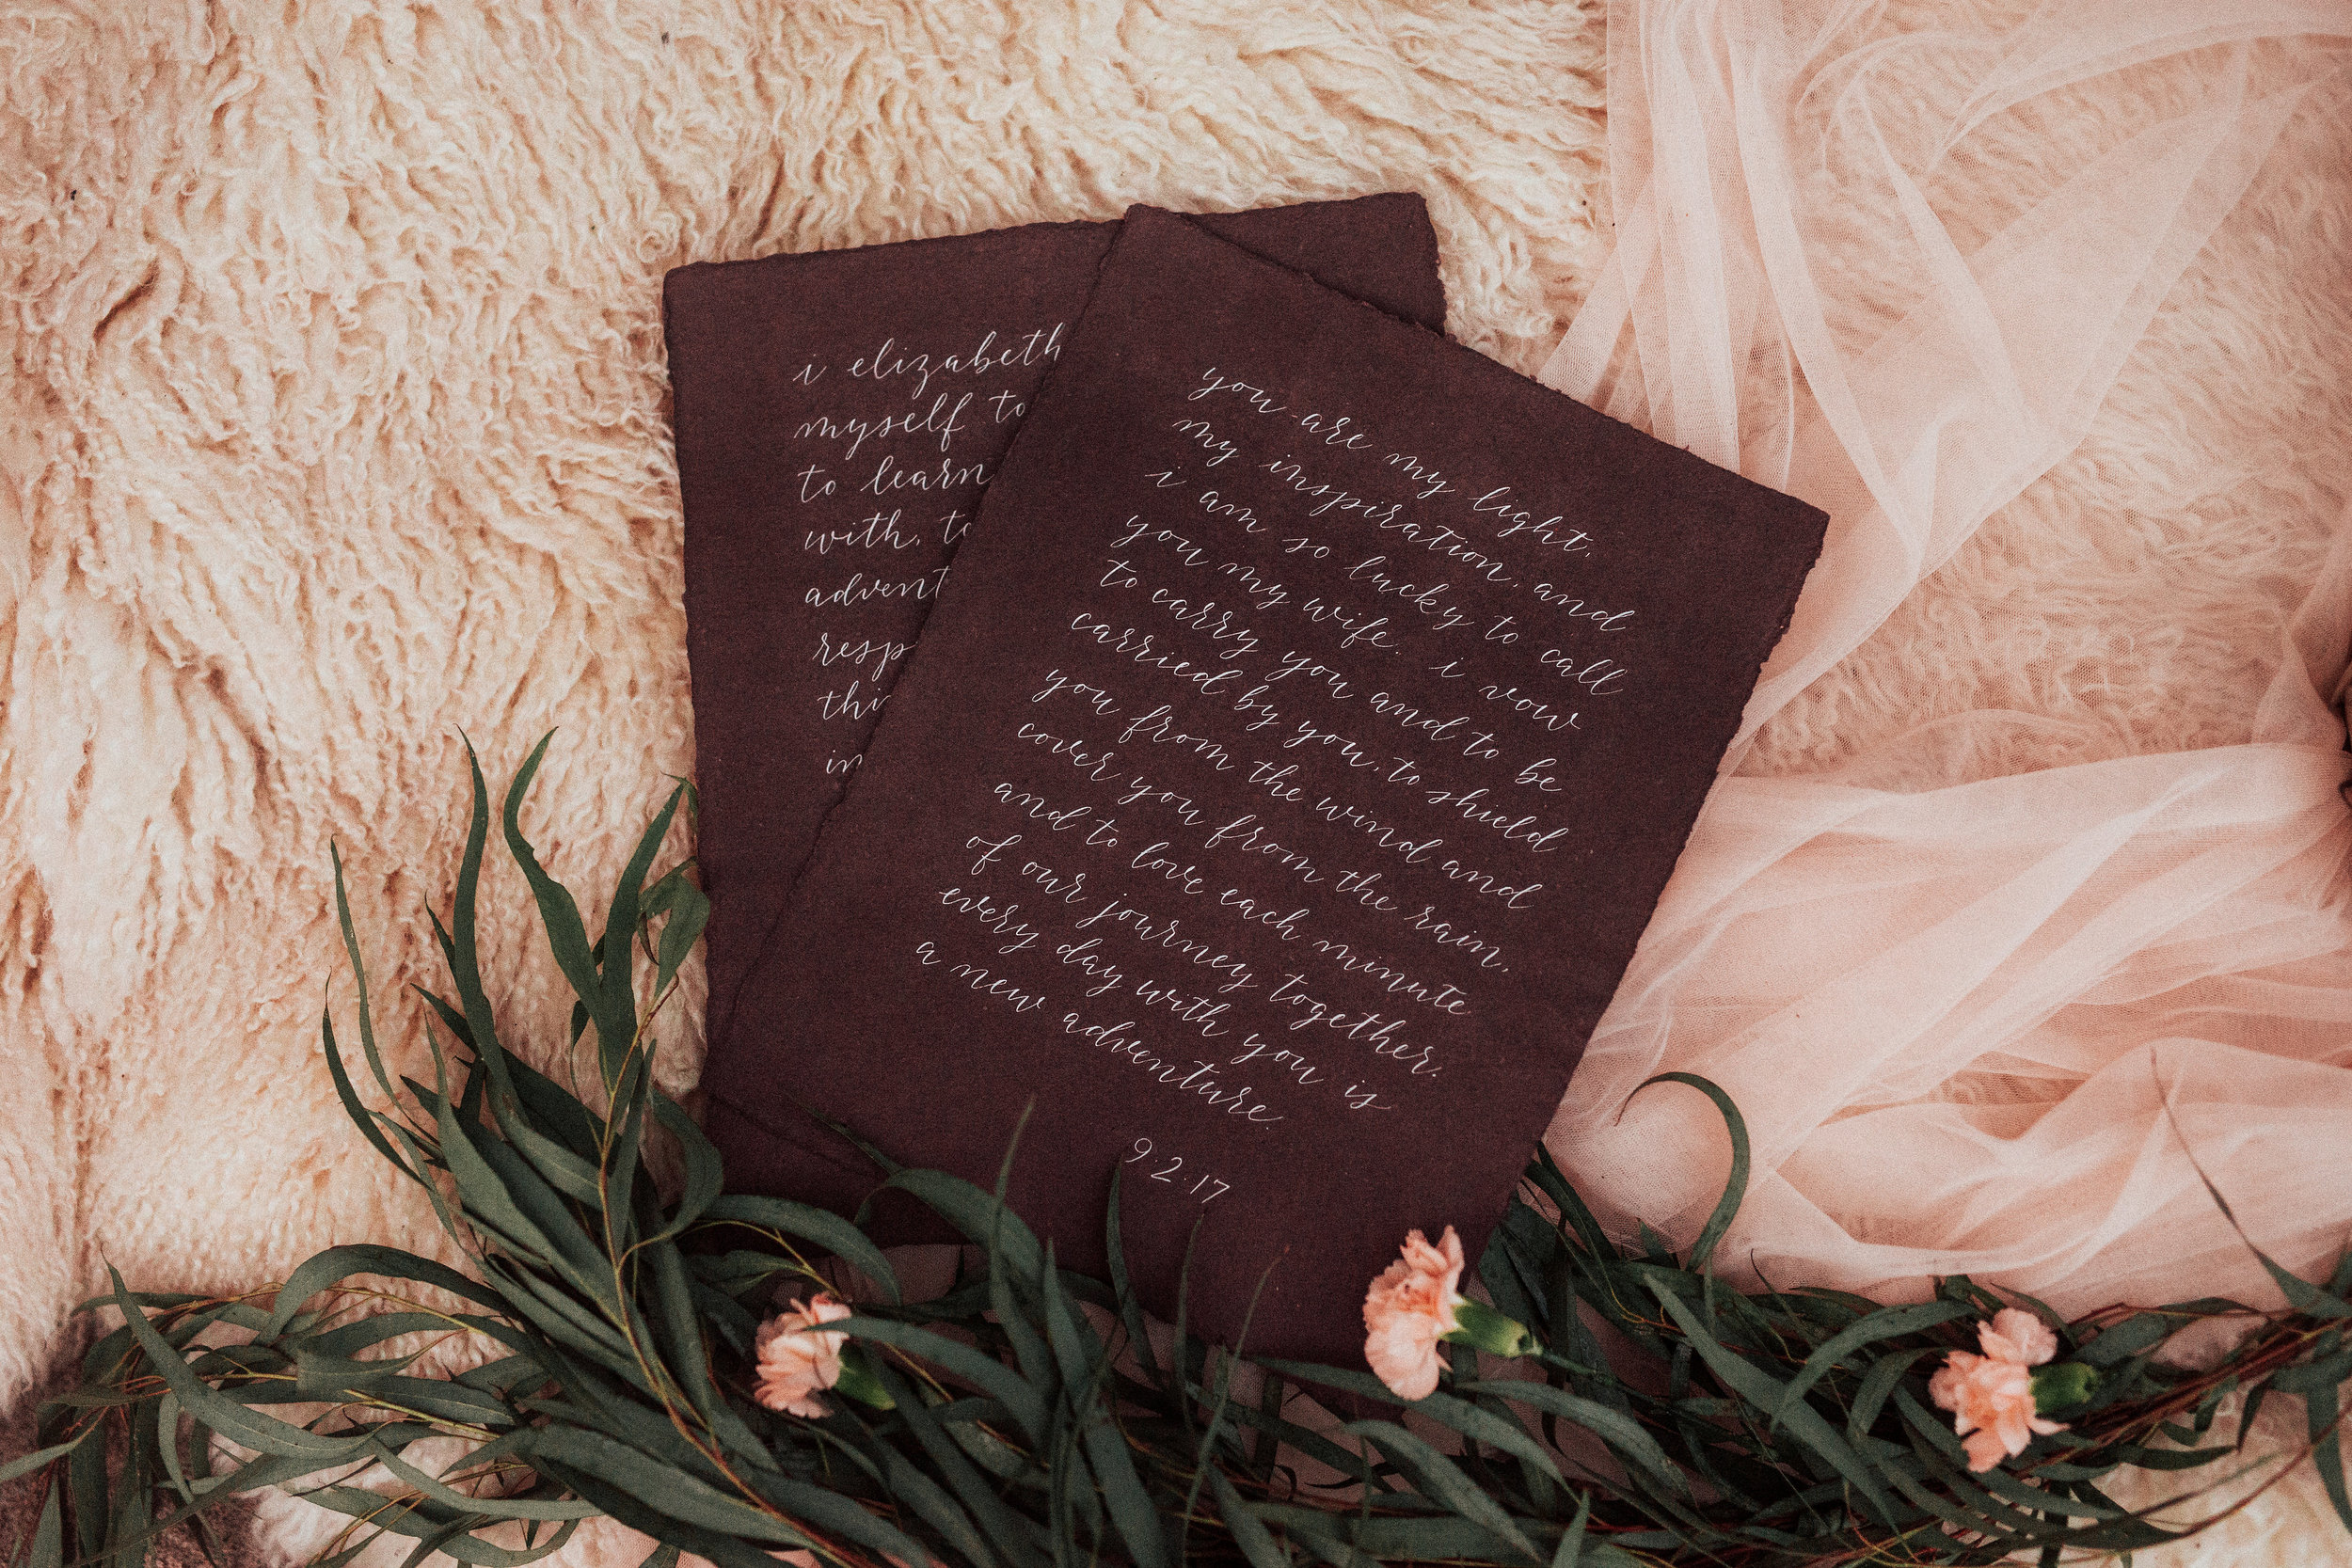 i elizabeth
myself to
to learn
with, to
advent
resp
thi
in
you are my light,
my inspiration, and
i am so lucky to call
you my wife. i vow
to carry you and to be
carried by you, to shield
you from the wind and
cover you from the rain,
and to love each minute
of our journey together.
every day with you is
a new adventure.
9.2.17